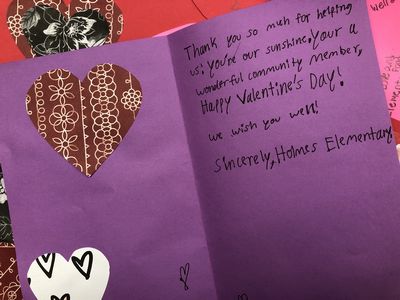 Thank you so much for helping
us! You're our sunshine. Your a
wonderful community member,
Happy Valentine's Day!
we wish you well!
Sincerely, Holmes Elementary
well